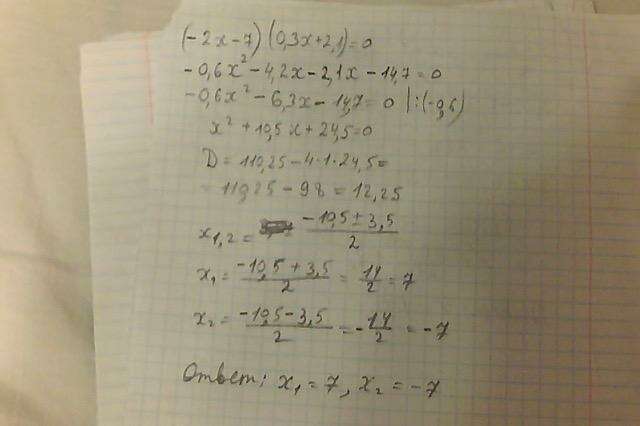 (-2x-7)(0,3x+2,1)=0
-0,6x²-4,2x-2,1x-14,7=0
-0,6x²-6,3x-14,7=0 |:(-0,6)
x²+10,5x+24,5=0
D=110,25-4·1·24,5=
=110,25-98=12,25
x₁,₂= (-10,5±3,5)/2
x₁= (-10,5+3,5)/2 = 14/2 = 7
x₂= (-10,5-3,5)/2 = -14/2 = -7
Ответ: x₁=7, x₂=-7